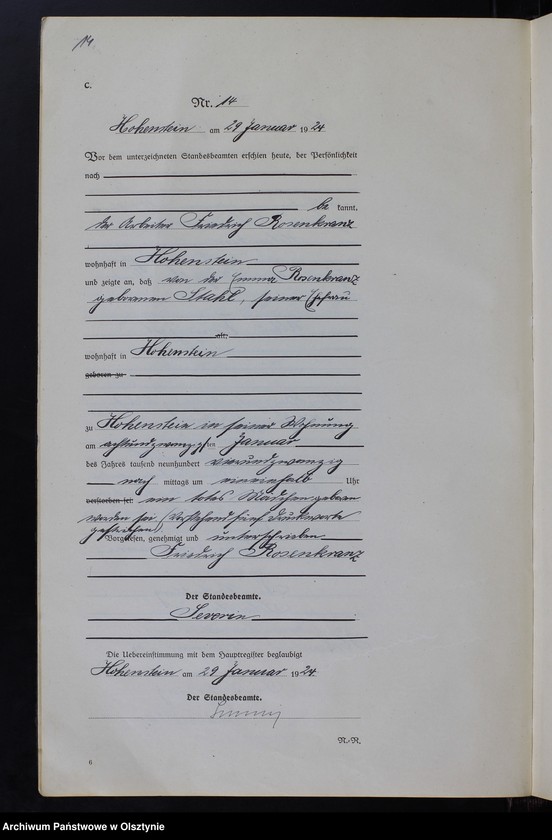 14
C.
Nr. 14
Hohenstein am 29 Januar 1924
Vor dem unterzeichneten Standesbeamten erschien heute, der Persönlichkeit
nach
be kannt,
der Arbeiter Friedrich Rosenkranz
wohnhaft in Hohenstein
und zeigte an, daß von der Emma Rosenkranz
geborenen Stahl, seiner Ehefrau
alt,
wohnhaft in Hohenstein
geboren zu
zu Hohenstein in seiner Wohnung
am achtundzwanzigsten Januar
des Jahres tausend neunhundert vierundzwanzig
nach mittags um eineinhalb Uhr
verstorben sei ein totes Mädchen geboren
worden sei (Vorstehend fünf Druckworte
gestrichen)
Vorgelesen, genehmigt und unterschrieben
Friedrich Rosenkranz
Der Standesbeamte.
Severin
Die Uebereinstimmung mit dem Hauptregister beglaubigt
Hohenstein am 29 Januar 1924
Der Standesbeamte.
N.-R.
6
Archiwum Państwowe w Olsztynie